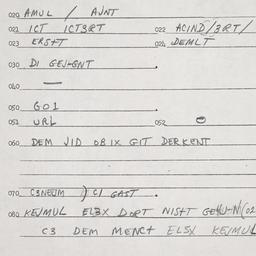 020 AMUL / AJNT
021 ICT ICT3RT 022 ACIND/3RT/
023 ERS+T 024 DEMLT
030 DI GEJ+GNT .
040 —
050 GO1 .
051 URL 052 0
060 DEM JID OB IX GIT DERKENT
070 C3NEUM ) C/ GAST .
080 KEJMUL ELBX DORT NIS+T
C3 DEM MENC+ ELSX KEJMUL